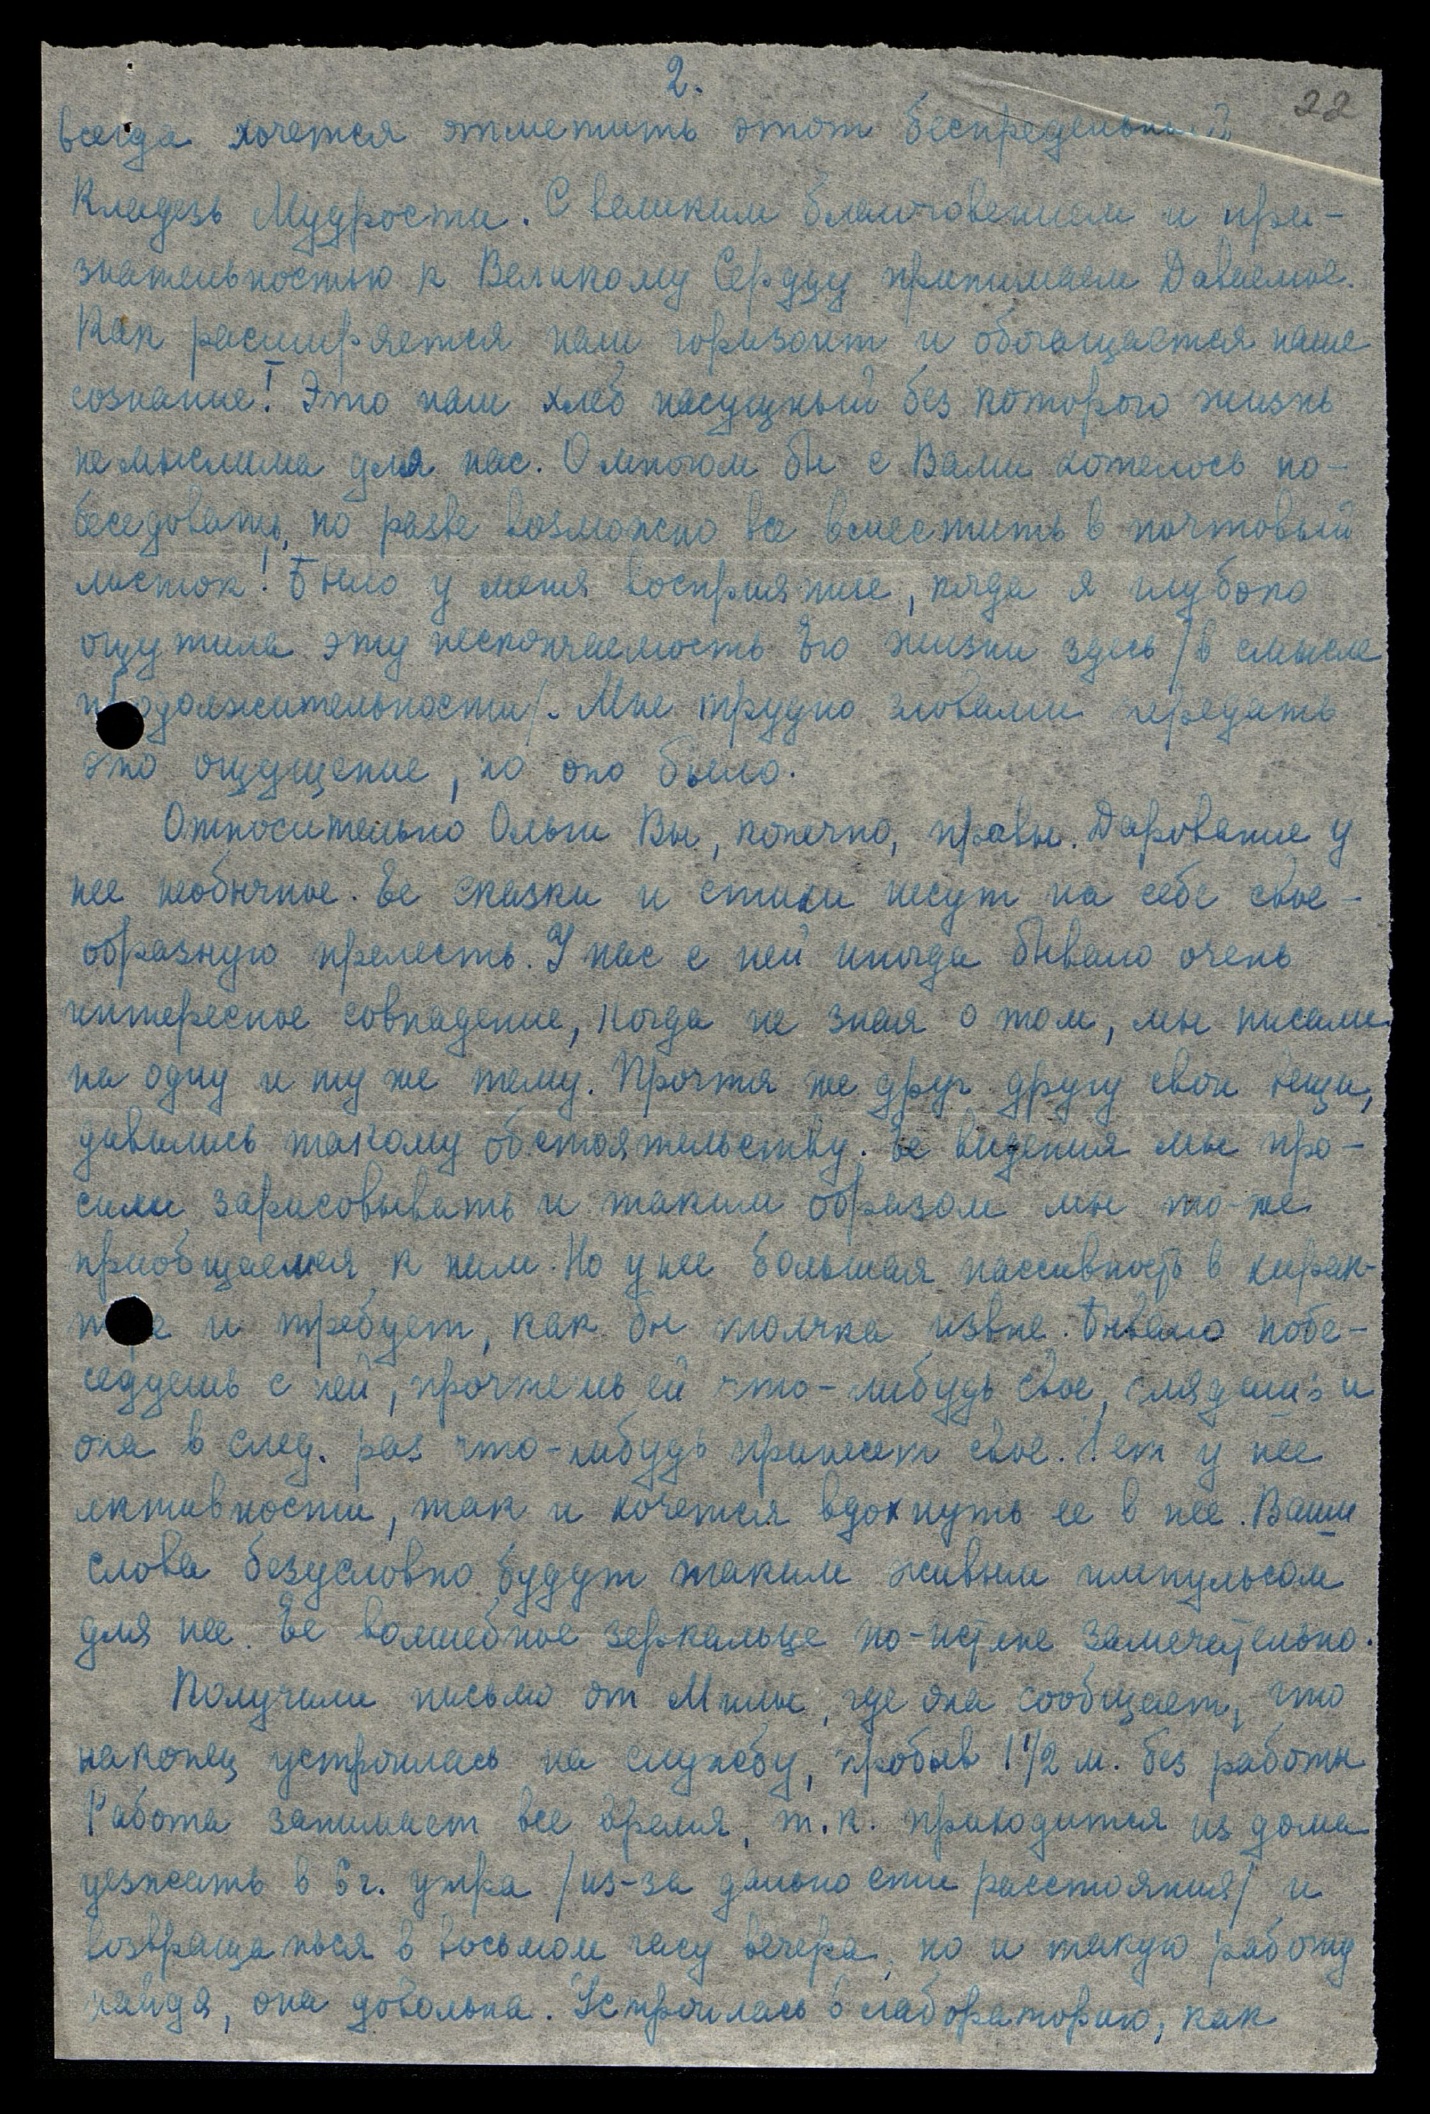 2.
22
всегда хочется отметить этот беспредельный
Кладезь Мудрости. С великим благоговением и при-
знательностью к Великому Сердцу принимаем Даваемое.
Как расширяется наш горизонт и обогащается наше
сознание! Это наш хлеб насущный без которого жизнь
немыслима для нас. О многом бы с Вами хотелось по-
беседовать, но разве возможно все вместить в почтовый
листок! Было у меня восприятие, когда я глубоко
ощутила эту нескончаемость Его жизни здесь /в смысле
продолжительности/. Мне трудно словами передать
это ощущение, но оно было.
Относительно Ольги Вы, конечно, правы. Дарование у
нее необычное. Ее сказки и стихи несут на себе свое-
образную прелесть. У нас с ней иногда бывало очень
интересное совпадение, когда не зная о том, мы писали
на одну и ту же тему. Прочтя же друг другу свои вещи,
дивились такому обстоятельству. Ее видения мы про-
сили зарисовывать и таким образом мы то-же
приобщаемся к ним. Но у нее большая пассивность в харак-
тере и требует, как бы толчка извне. Бывало побе-
седуешь с ней, прочтешь ей что-либудь свое, глядишь и
она в след. раз что-нибудь принесет свое. Нет у нее
активности, так и хочется вдохнуть ее в нее. Ваши
слова безусловно будут таким живым импульсом
для нее. Ее волшебное зеркальце по-истене замечательно.
Получили письмо от Милы, где она сообщает, что
наконец устроилась на службу, пробыв 1 1/2 м. без работы
Работа занимает все время, т.к. приходится из дома
уезжать в 6 г. утра /из-за дальности расстояния/ и
возвращаться в восьмом часу вечера, но и такую работу
найдя, она довольна. Устроилась в лабораторию, как